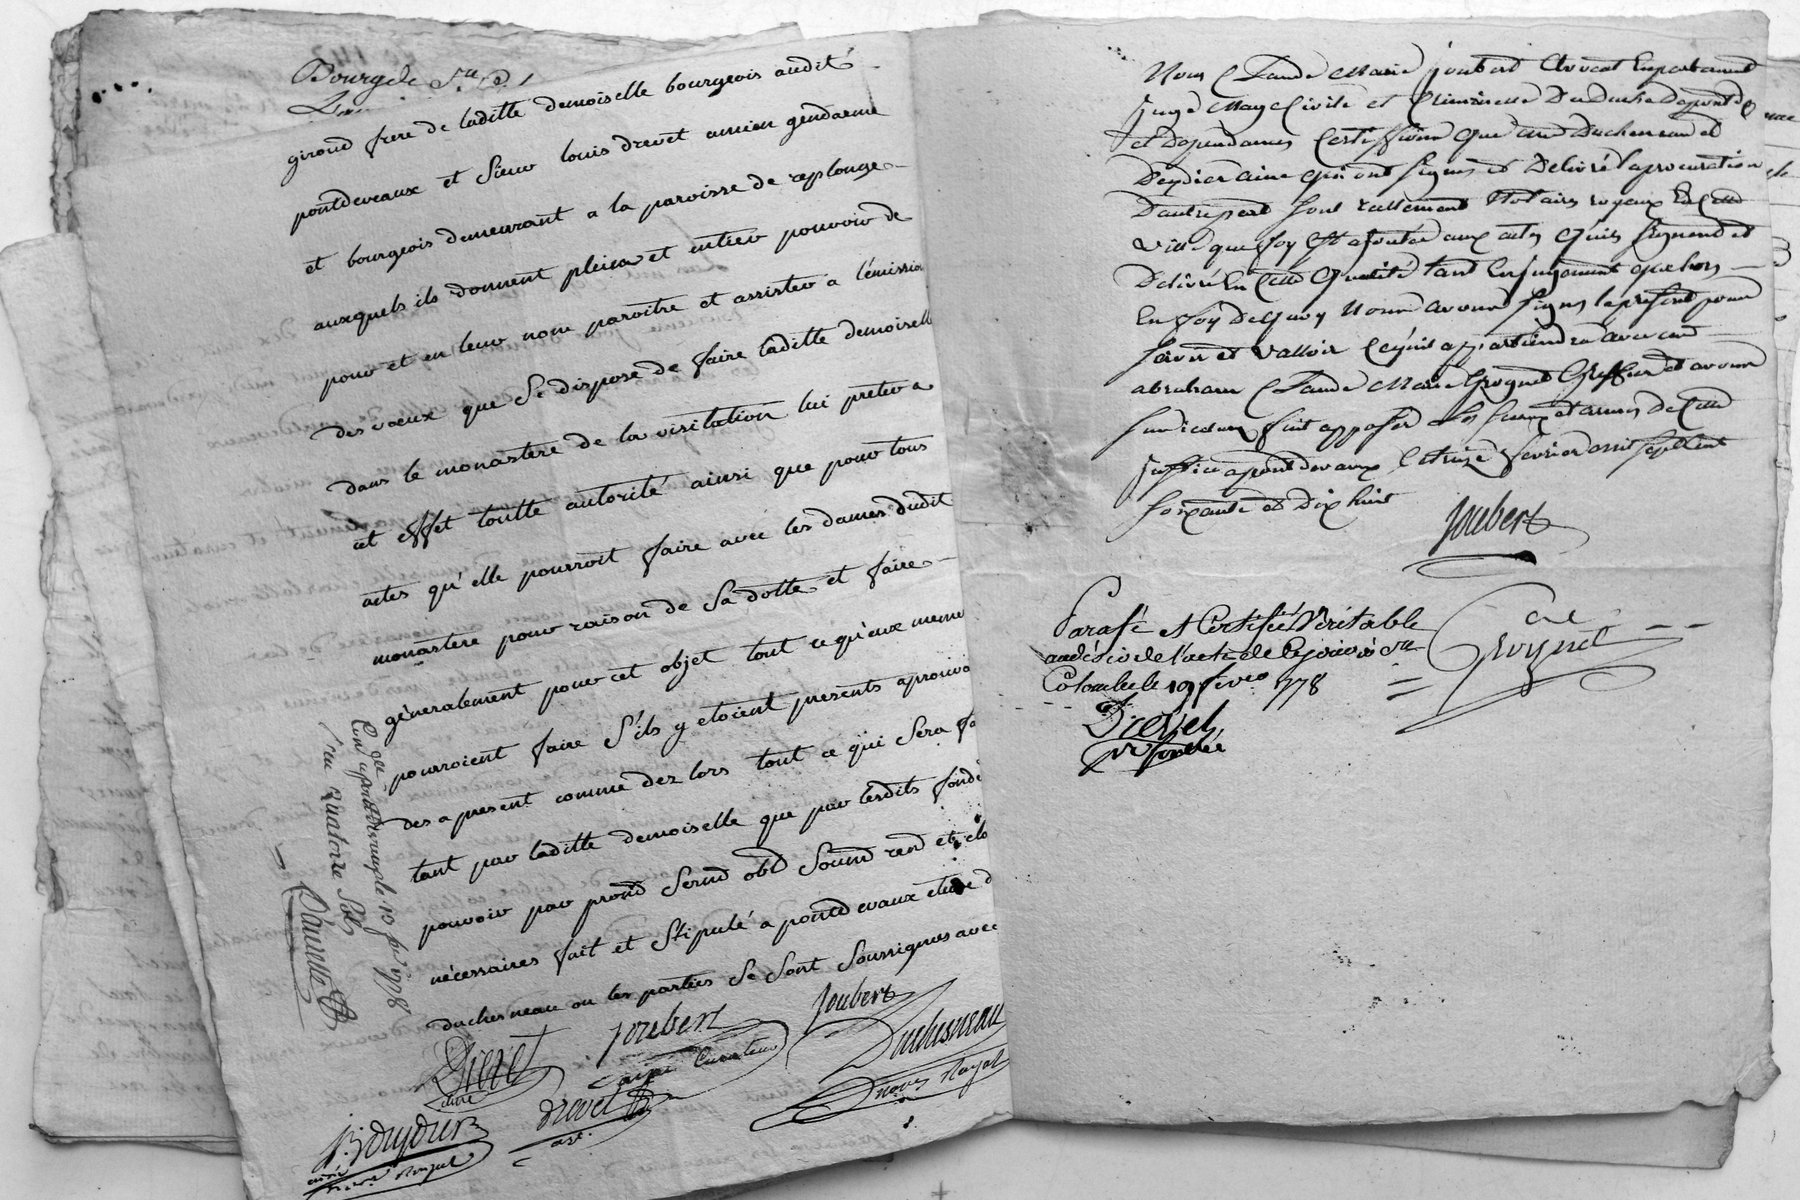 giroud frere de laditte demoiselle bourgeois audit
pontdeveaux et Sieur louis drevet ancien gendarme
et bourgeois demeurant a la paroisse de replonge
auxquels ils donnent plein et entier pouvoir de
pour et en leur nom paroitre et assister a l'émission
des vœux que Se dispose de faire laditte demoisell
dans le monastère de la visitation lui preter a
cet effet toutte autorité ainsi que pour tous
actes qu'elle pourroit faire avec les dames dudit
monastere pour raison de Sa dotte et faire
géneralement pour cet objet tout ce qu'eux meme
pourroient faire S'ils y etoient presents aprouva
des a present comme dez lors tout ce qui Sera fa
tant par laditte demoiselle que par lesdits fondé
pouvoir par promd Sermd obld Soumd rend et clo
nécessaires fait et Stipulé a pontdevaux etude d
duchesneau ou les parties Se Sont Soussignés avec
Drevet
Joubert
Joubert
Duchesneau
curateur
drevet
Nore Royal
Con apontdevaux le 10 fer 1778
reçu quatorze Sols
Nous Claude Marie Joubert Avocat Enparlement
Juge Mage Civile et Criminelle Du Duché Depontde
et Dependances Certiffions que Duchesneau et
Deydier aine qui ont signés et Delivré la procuration
D'autrepart Sont réellement Notaires royaux En cette
ville que foy Est ajoutée aux actes qu'ils signent et
Delivre En Cette Qualité tant En jugement que hors
En foy Dequoy Nous avons signes le present pour
servir et valloir Ce qu'il appartiendra avec
abraham Claude Marie Groguet Greffier et avons
fait apposer les sceaux et armes De Cette
Justice apontdevaux Le treize fevrier mil sept cent
soixante et Dix huit
Joubert
Parafé et Certifié Veritable
au désir de l'acte de
Colombe le 19 fevrer 1778
Groguet
Drevet